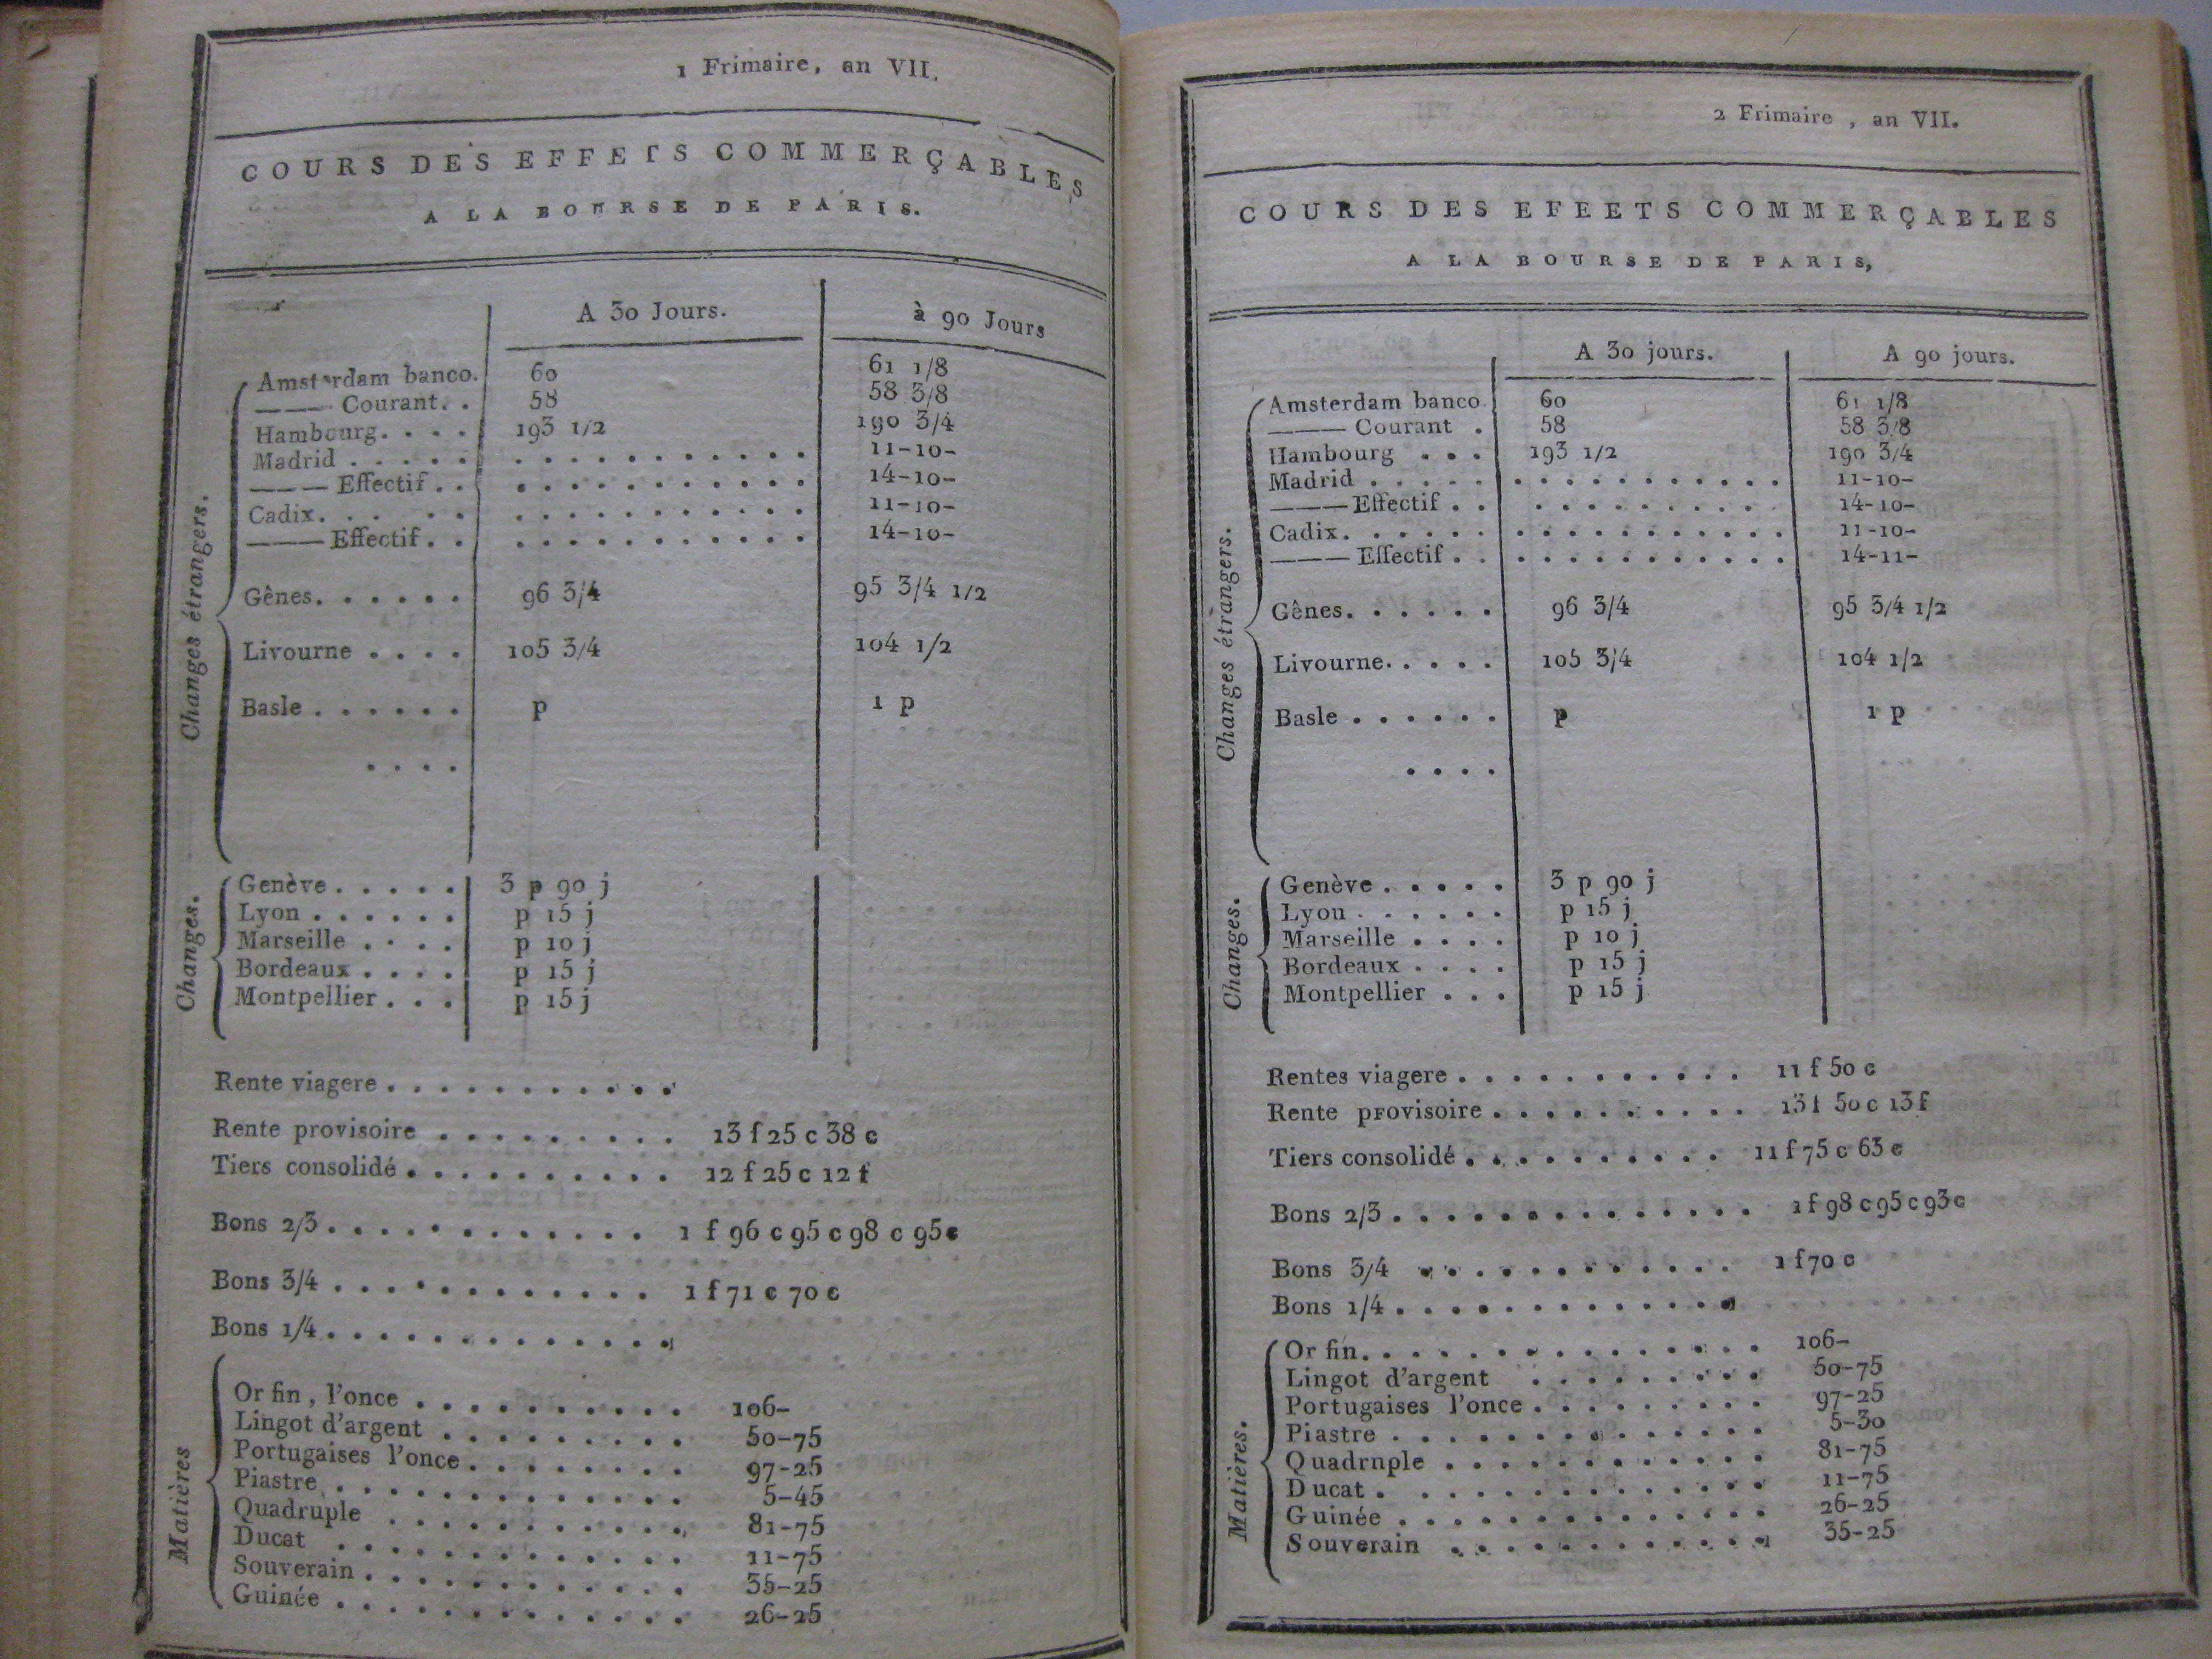 1 Frimaire, an VII.
COURS DES EFFETS COMMERÇABLES
A LA BOURSE DE PARIS.
A 30 Jours. à 90 Jours
Changes étrangers.
Amsterdam banco. 60 61 1/8
——— Courant. . 58 58 3/8
Hambourg. . . . 193 1/2 190 3/4
Madrid . . . . . . . . . . . . . . . . 11-10-
——— Effectif . . . . . . . . . . . . . 14-10-
Cadix. . . . . . . . . . . . . . . . 11-10-
——— Effectif . . . . . . . . . . . . . 14-10-
Gênes. . . . . . 96 3/4 95 3/4 1/2
Livourne . . . . 105 3/4 104 1/2
Basle . . . . . . p 1 p
. . . .
Changes.
Genève . . . . . 3 p 90 j
Lyon . . . . . . p 15 j
Marseille . . . . p 10 j
Bordeaux . . . . p 15 j
Montpellier . . . p 15 j
Rente viagere . . . . . . . . . . .
Rente provisoire . . . . . . . . . 13 f 25 c 38 c
Tiers consolidé . . . . . . . . . . 12 f 25 c 12 f
Bons 2/3 . . . . . . . . . . . . 1 f 96 c 95 c 98 c 95 c
Bons 3/4 . . . . . . . . . . . . 1 f 71 c 70 c
Bons 1/4 . . . . . . . . . . . . .
Matières
Or fin, l'once . . . . . . . . . . 106-
Lingot d'argent . . . . . . . . . 50-75
Portugaises l'once . . . . . . . . 97-25
Piastre . . . . . . . . . . . . . 5-45
Quadruple . . . . . . . . . . . 81-75
Ducat . . . . . . . . . . . . . 11-75
Souverain . . . . . . . . . . . . 35-25
Guinée . . . . . . . . . . . . . 26-25
2 Frimaire, an VII.
COURS DES EFEETS COMMERÇABLES
A LA BOURSE DE PARIS,
A 30 jours. A 90 jours.
Changes étrangers.
Amsterdam banco 60 61 1/8
——— Courant . 58 58 3/8
Hambourg . . . 193 1/2 190 3/4
Madrid . . . . . . . . . . . . . . . . 11-10-
——— Effectif . . . . . . . . . . . 14-10-
Cadix. . . . . . . . . . . . . . . . . 11-10-
——— Effectif . . . . . . . . . . . . . 14-11-
Gênes. . . . . . 96 3/4 95 3/4 1/2
Livourne. . . . . 105 3/4 104 1/2
Basle . . . . . . p 1 p
. . . .
Changes.
Genève . . . . . 3 p 90 j
Lyon . . . . . . p 15 j
Marseille . . . . p 10 j
Bordeaux . . . . p 15 j
Montpellier . . . p 15 j
Rentes viagere . . . . . . . . . . . 11 f 50 c
Rente provisoire . . . . . . . . . . 13 f 50 c 13 f
Tiers consolidé . . . . . . . . . . 11 f 75 c 63 c
Bons 2/3 . . . . . . . . . . . . . . 1 f 98 c 95 c 93 c
Bons 3/4 . . . . . . . . . . . . 1 f 70 c
Bons 1/4 . . . . . . . . . . . . .
Matières.
Or fin. . . . . . . . . . . . . . . 106-
Lingot d'argent . . . . . . . . . 50-75
Portugaises l'once . . . . . . . . . 97-25
Piastre . . . . . . . . . . . . . . 5-30
Quadrnple . . . . . . . . . . . . 81-75
Ducat . . . . . . . . . . . . . . 11-75
Guinée . . . . . . . . . . . . . . 26-25
Souverain . . . . . . . . . . . . 35-25